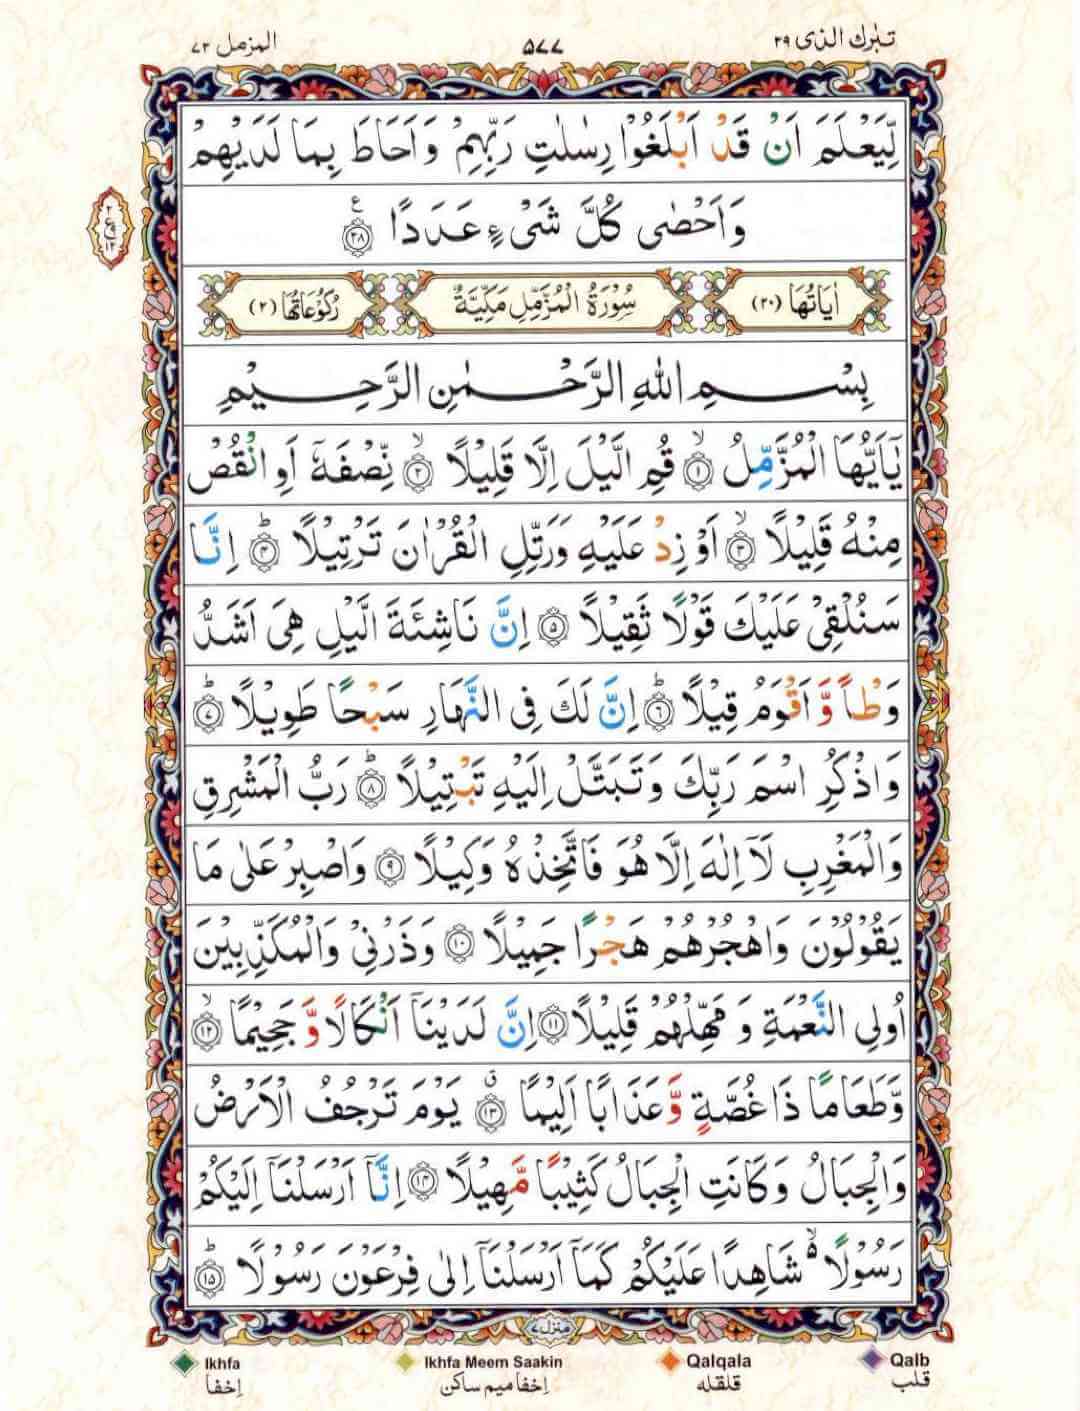 تبٰرك الذی ۲۹
۵۷۷
المزمل ۷۳
لِّیَعْلَمَ اَنْ قَدْ اَبْلَغُوْا رِسٰلٰتِ رَبِّهِمْ وَ اَحَاطَ بِمَا لَدَیْهِمْ
وَ اَحْصٰى كُلَّ شَیْءٍ عَدَدًا ۠ ﴿۲۸﴾
ع ۲ ۱۲
اٰیَاتُهَا (۲۰)
سُوْرَةُ الْمُزَّمِّلِ مَكِّیَّةٌ
رُكُوْعَاتُهَا (۲)
بِسْمِ اللّٰهِ الرَّحْمٰنِ الرَّحِیْمِ
یٰۤاَیُّهَا الْمُزَّمِّلُ ۙ﴿۱﴾ قُمِ الَّیْلَ اِلَّا قَلِیْلًا ۙ﴿۲﴾ نِّصْفَهٗۤ اَوِ انْقُصْ
مِنْهُ قَلِیْلًا ۙ﴿۳﴾ اَوْ زِدْ عَلَیْهِ وَ رَتِّلِ الْقُرْاٰنَ تَرْتِیْلًا ؕ﴿۴﴾ اِنَّا
سَنُلْقِیْ عَلَیْكَ قَوْلًا ثَقِیْلًا ﴿۵﴾ اِنَّ نَاشِئَةَ الَّیْلِ هِیَ اَشَدُّ
وَطْاً وَّ اَقْوَمُ قِیْلًا ؕ﴿۶﴾ اِنَّ لَكَ فِی النَّهَارِ سَبْحًا طَوِیْلًا ؕ﴿۷﴾
وَ اذْكُرِ اسْمَ رَبِّكَ وَ تَبَتَّلْ اِلَیْهِ تَبْتِیْلًا ؕ﴿۸﴾ رَبُّ الْمَشْرِقِ
وَ الْمَغْرِبِ لَاۤ اِلٰهَ اِلَّا هُوَ فَاتَّخِذْهُ وَكِیْلًا ﴿۹﴾ وَ اصْبِرْ عَلٰى مَا
یَقُوْلُوْنَ وَ اهْجُرْهُمْ هَجْرًا جَمِیْلًا ﴿۱۰﴾ وَ ذَرْنِیْ وَ الْمُكَذِّبِیْنَ
اُولِی النَّعْمَةِ وَ مَهِّلْهُمْ قَلِیْلًا ﴿۱۱﴾ اِنَّ لَدَیْنَاۤ اَنْكَالًا وَّ جَحِیْمًا ۙ﴿۱۲﴾
وَّ طَعَامًا ذَا غُصَّةٍ وَّ عَذَابًا اَلِیْمًا ۗ﴿۱۳﴾ یَوْمَ تَرْجُفُ الْاَرْضُ
وَ الْجِبَالُ وَ كَانَتِ الْجِبَالُ كَثِیْبًا مَّهِیْلًا ﴿۱۴﴾ اِنَّاۤ اَرْسَلْنَاۤ اِلَیْكُمْ
رَسُوْلًا ۙ۬ شَاهِدًا عَلَیْكُمْ كَمَاۤ اَرْسَلْنَاۤ اِلٰى فِرْعَوْنَ رَسُوْلًا ؕ﴿۱۵﴾
منزل ۷
Ikhfa Ikhfa Meem Saakin Qalqala Qalb
اِخفا اِخفا میم ساکن قلقله قلب